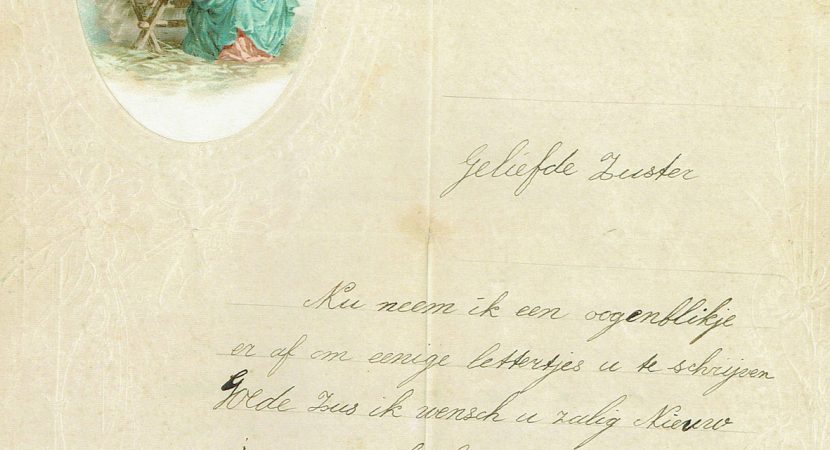 Geliefde Zuster
Nu neem ik een oogenblikje
er af om eenige lettertjes u te schrijven
Goede Zus ik wensch u zalig Nieuw